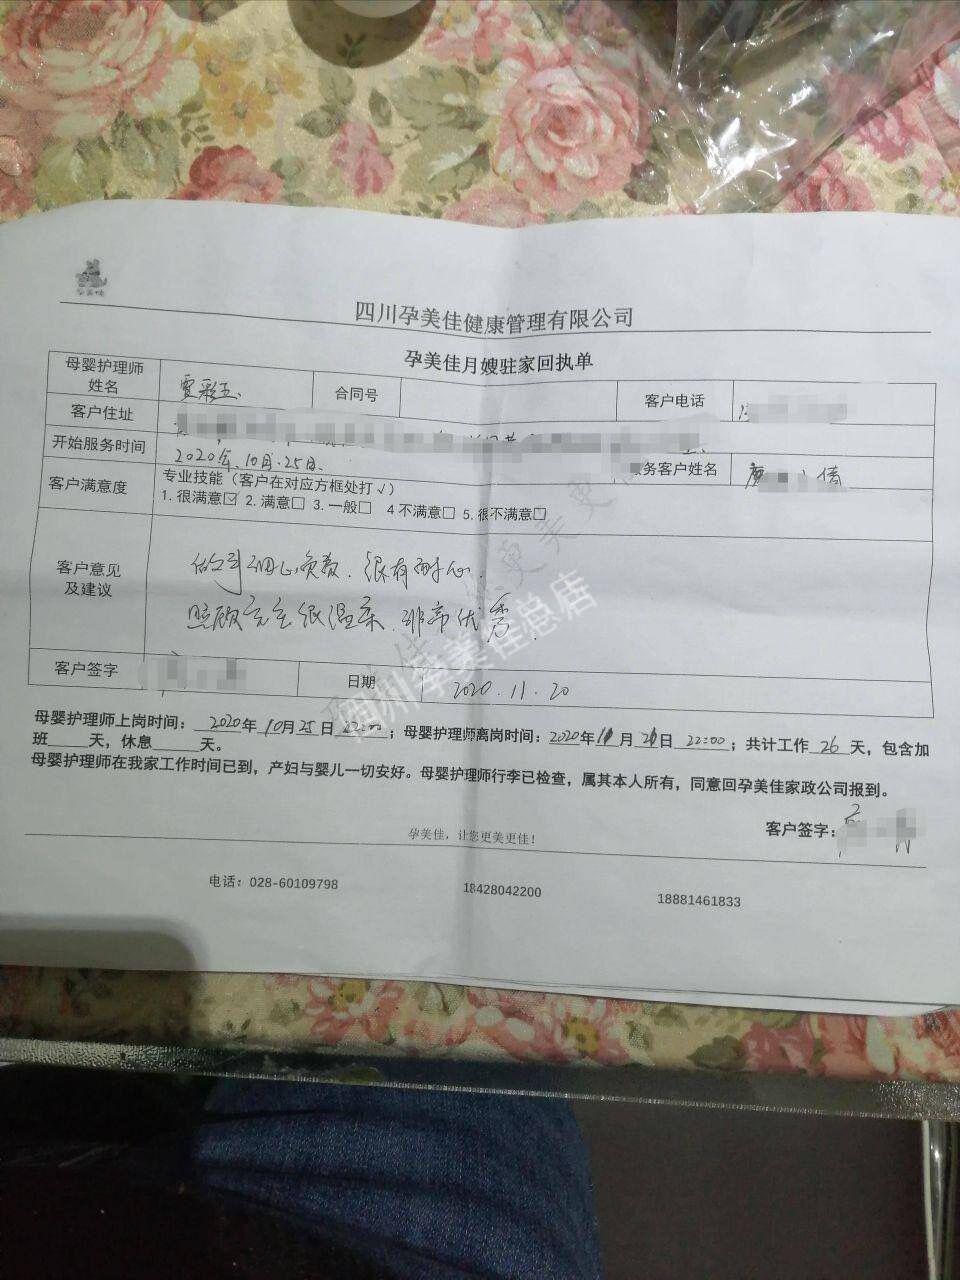 孕美佳
四川孕美佳健康管理有限公司
孕美佳月嫂驻家回执单
母婴护理师姓名 贾彩玉 合同号 客户电话
客户住址
开始服务时间 2020年.10月.25日. 务客户姓名 倩
客户满意度 专业技能（客户在对应方框处打√）
1. 很满意☑ 2. 满意□ 3. 一般□ 4 不满意□ 5. 很不满意□
客户意见及建议
做事细心负责. 很有耐心.
照顾宝宝很温柔. 非常优秀.
客户签字 日期 2020.11.20
母婴护理师上岗时间： 2020年10月25日 22:00；母婴护理师离岗时间：2020年11月20日 22:00；共计工作 26 天，包含加
班____天，休息____天。
母婴护理师在我家工作时间已到，产妇与婴儿一切安好。母婴护理师行李已检查，属其本人所有，同意回孕美佳家政公司报到。
客户签字：
孕美佳，让您更美更佳！
电话：028-60109798 18428042200 18881461833
孕美佳总店